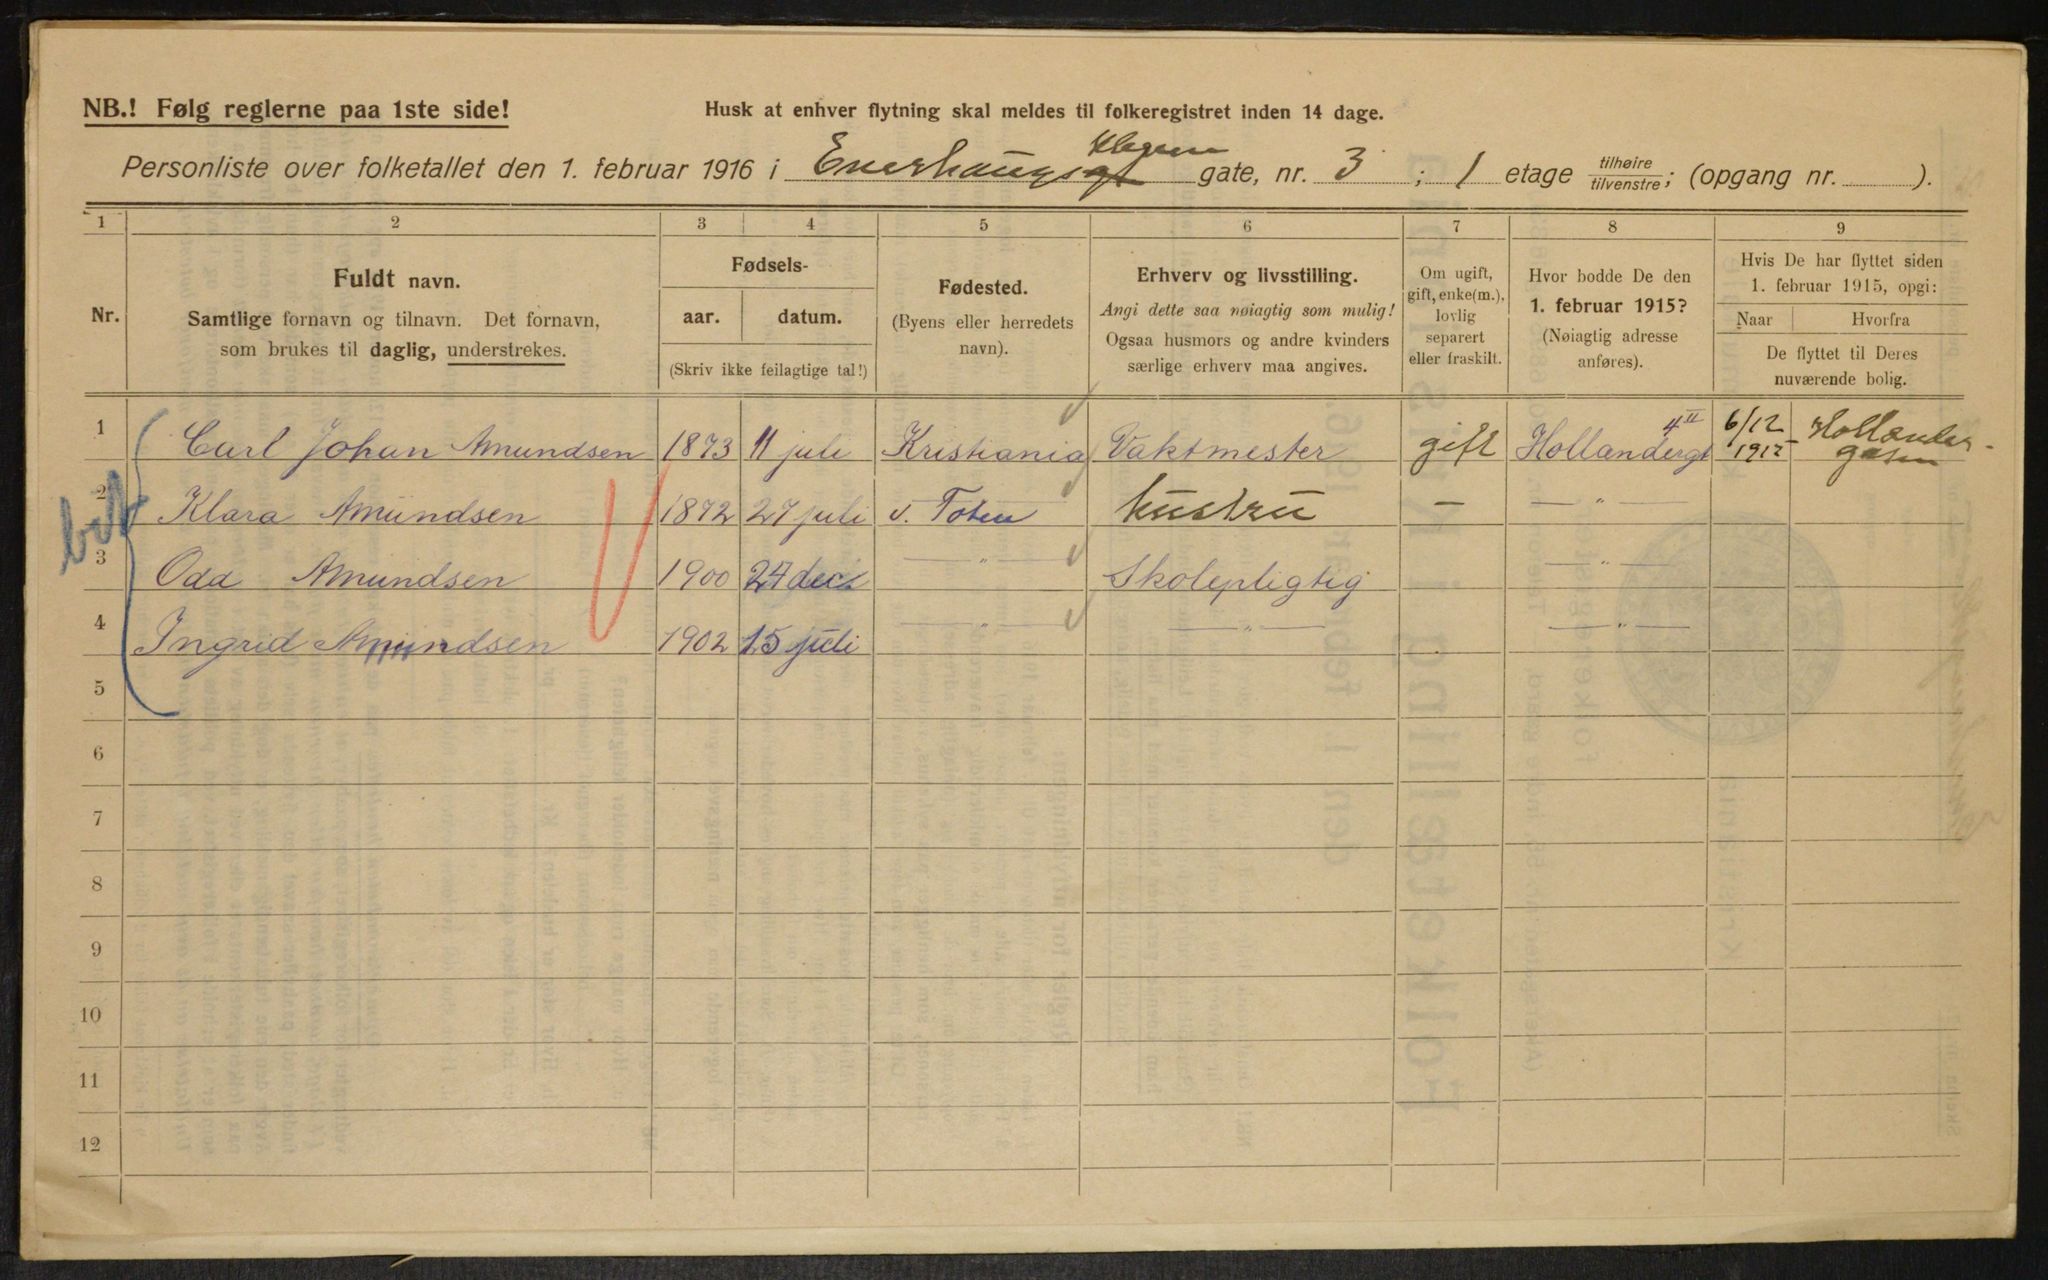 NB.! Følg reglerne paa 1ste side!
Husk at enhver flytning skal meldes til folkeregistret inden 14 dage.
Personliste over folketallet den 1. februar 1916 i Enerhaugsgt gate, nr. 3; 1 etage tilhøire/tilvenstre; (opgang nr. ).
1 2 3 4 5 6 7 8 9
Nr.
Fuldt navn.
Samtlige fornavn og tilnavn. Det fornavn,
som brukes til daglig, understrekes.
Fødsels-
aar. datum.
(Skriv ikke feilagtige tal!)
Fødested.
(Byens eller herredets
navn).
Erhverv og livsstilling.
Angi dette saa nøiagtig som mulig!
Ogsaa husmors og andre kvinders
særlige erhverv maa angives.
Om ugift,
gift, enke(m.),
lovlig
separert
eller fraskilt.
Hvor bodde De den
1. februar 1915?
(Nøiagtig adresse
anføres).
Hvis De har flyttet siden
1. februar 1915, opgi:
Naar Hvorfra
De flyttet til Deres
nuværende bolig.
1 Carl Johan Amundsen 1873 11 juli Kristiania Vaktmester gift Hollendergt 4 II 6/12 1915 Hollender-
gaten
2 Klara Amundsen 1872 27 juli v. Toten hustru — — " —
3 Odd Amundsen 1900 24 dec — " — Skolepligtig — " —
4 Ingrid Amundsen 1902 15 juli — " — — " — — " —
5
6
7
8
9
10
11
12